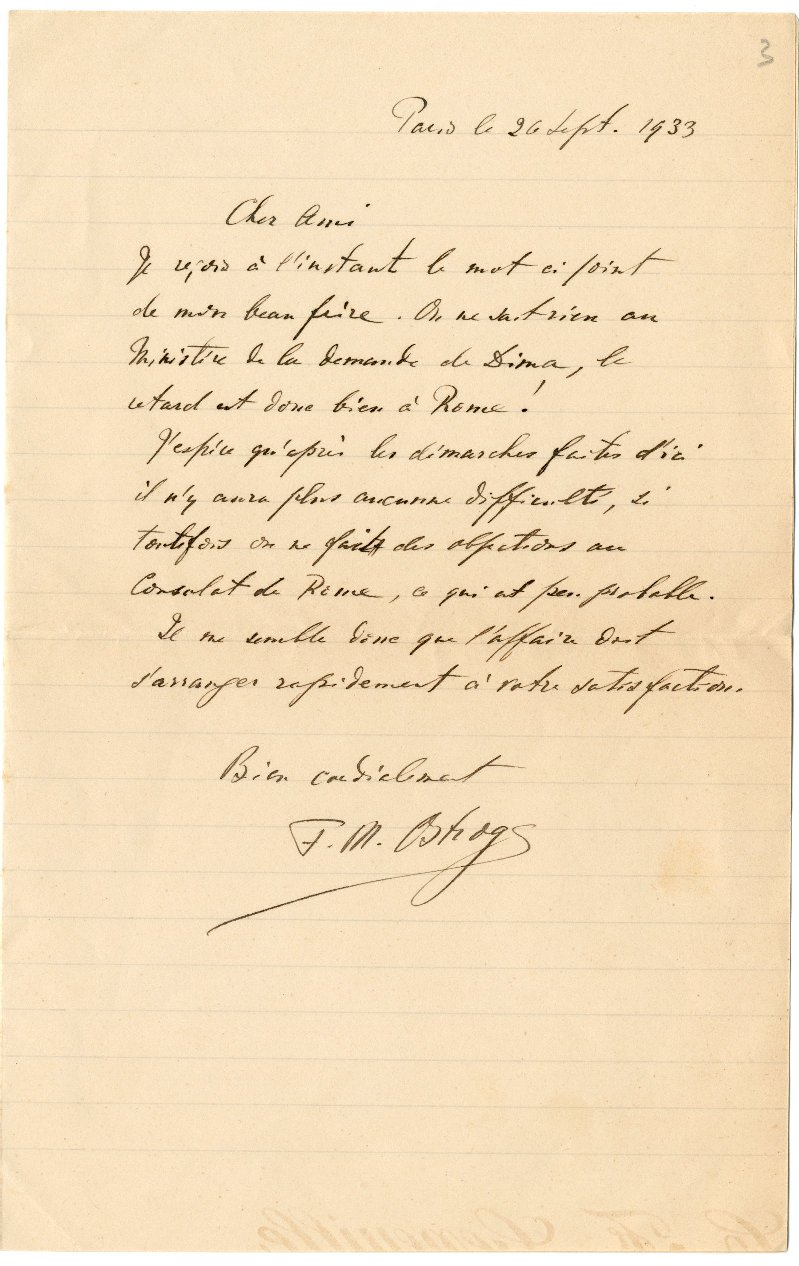 3
Paris le 26 Sept. 1933
Cher Ami
Je reçois à l'instant le mot ci joint
de mon beau frère. On ne sait rien au
Ministère de la demande de Dima, le
retard est donc bien à Rome !
J'espère qu'après les démarches faites d'ici
il n'y aura plus aucune difficulté, si
toutefois on ne fait des objections au
Consulat de Rome, ce qui est peu probable.
Il me semble donc que l'affaire doit
s'arranger rapidement à votre satisfaction.
Bien cordialement
F. M. Ostroga